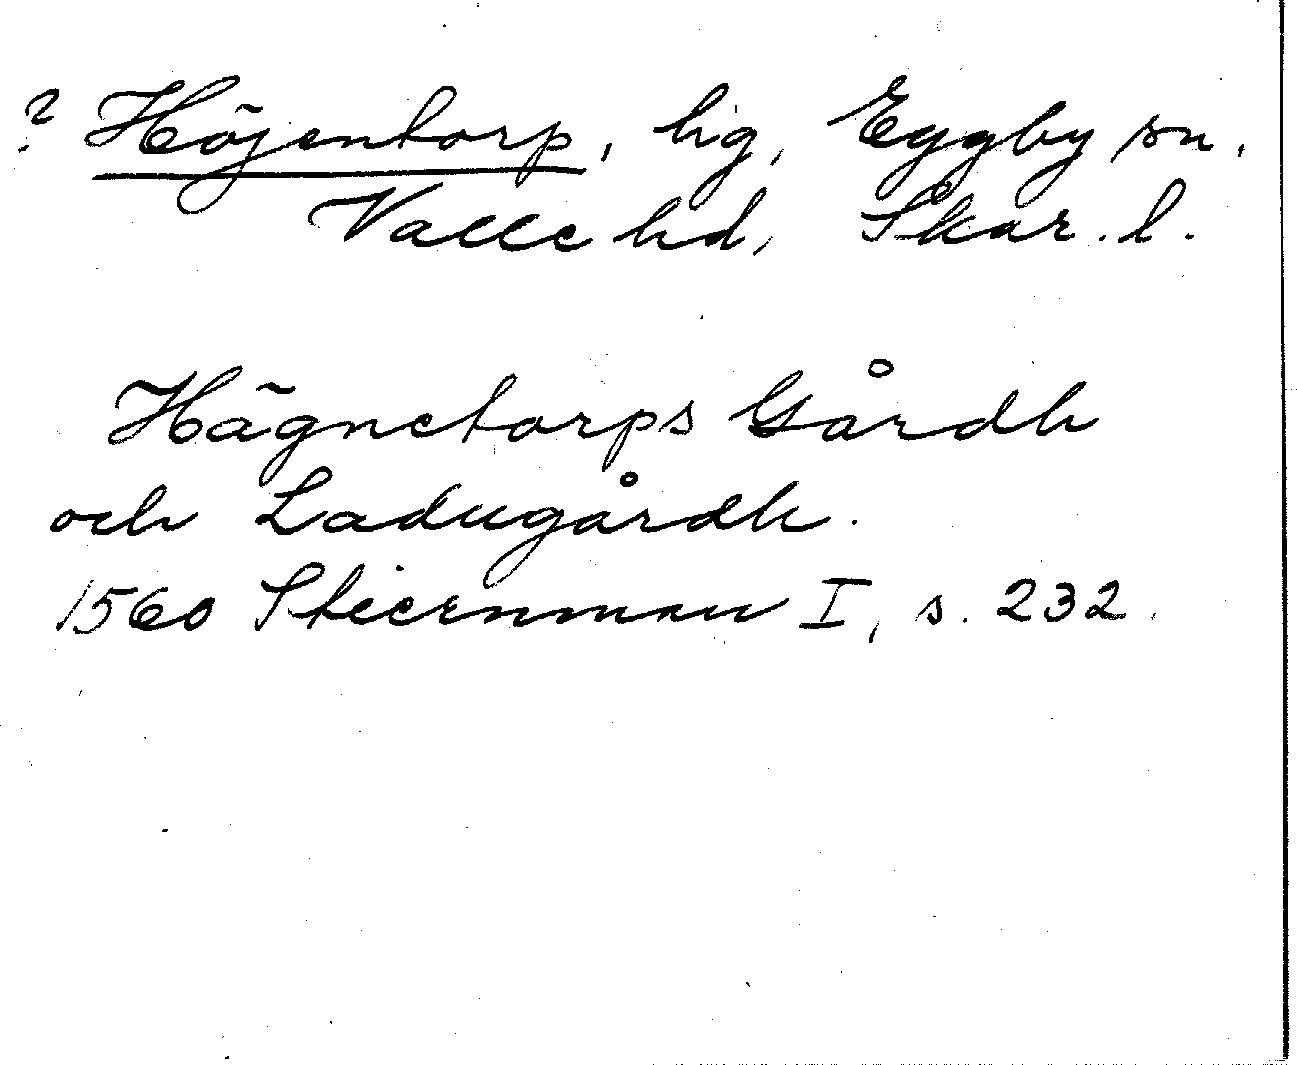 ? Höjentorp, hg, Eggby sn,
Valle hd, Skar. l.
Hägnetorps Gårdh
och Ladugårdh.
1560 Stiernman I, s. 232.